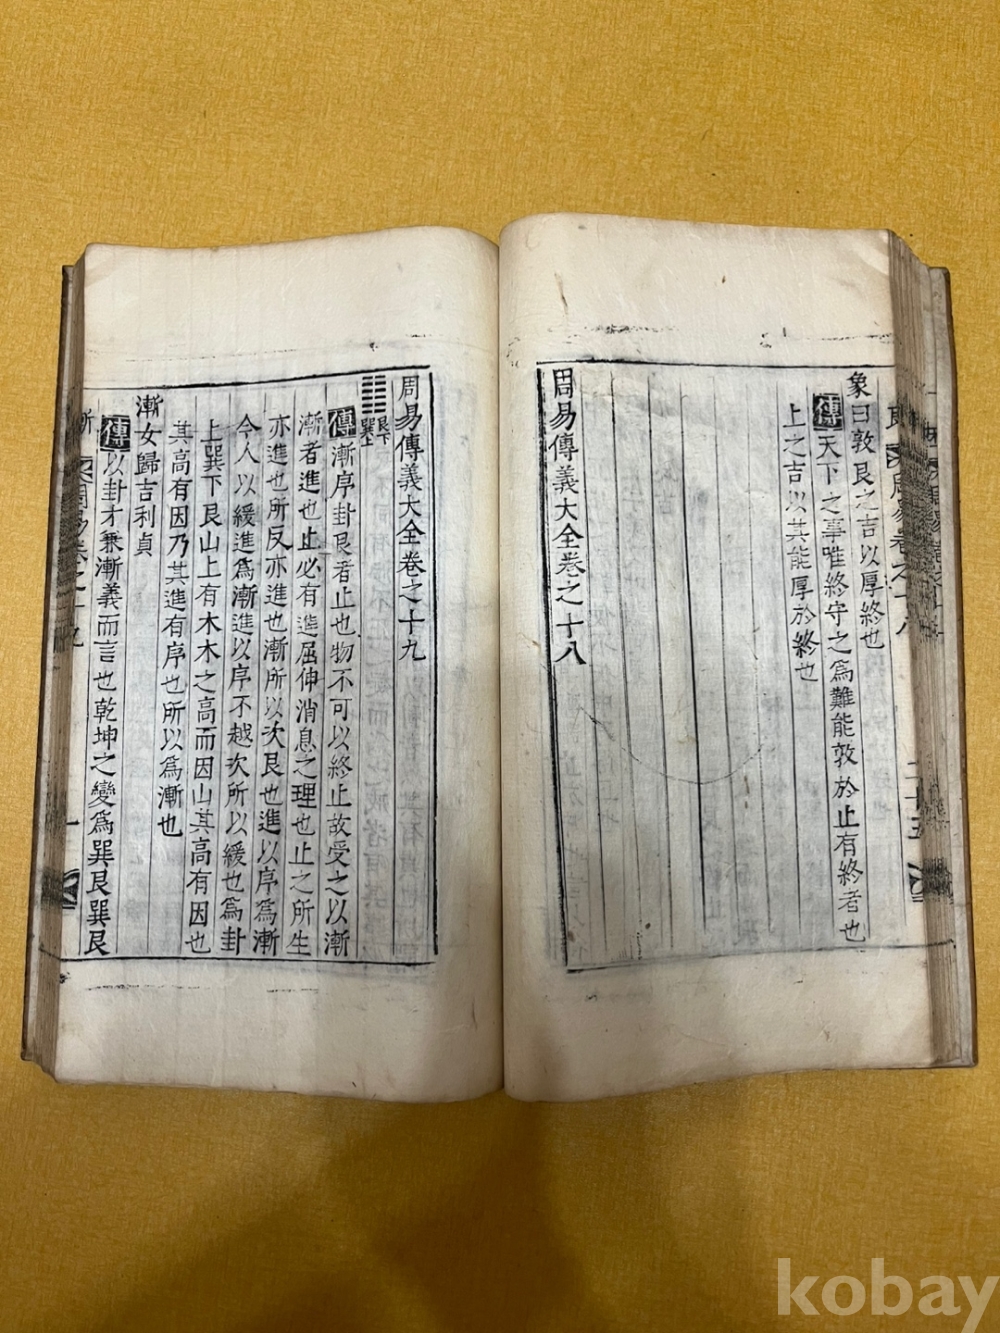 象曰敦艮之吉以厚終也
傳天下之事唯終守之爲難能敦於止有終者也
上之吉以其能厚於終也
周易傳義大全卷之十八
周易傳義大全卷之十九
艮下
巽上
傳漸序卦艮者止也物不可以終止故受之以漸
漸者進也止必有進屈伸消息之理也止之所生
亦進也所反亦進也漸所以次艮也進以序爲漸
今人以緩進爲漸進以序不越次所以緩也爲卦
上巽下艮山上有木木之高而因山其高有因也
其高有因乃其進有序也所以爲漸也
漸女歸吉利貞
傳以卦才兼漸義而言也乾坤之變爲巽艮巽艮
kobay